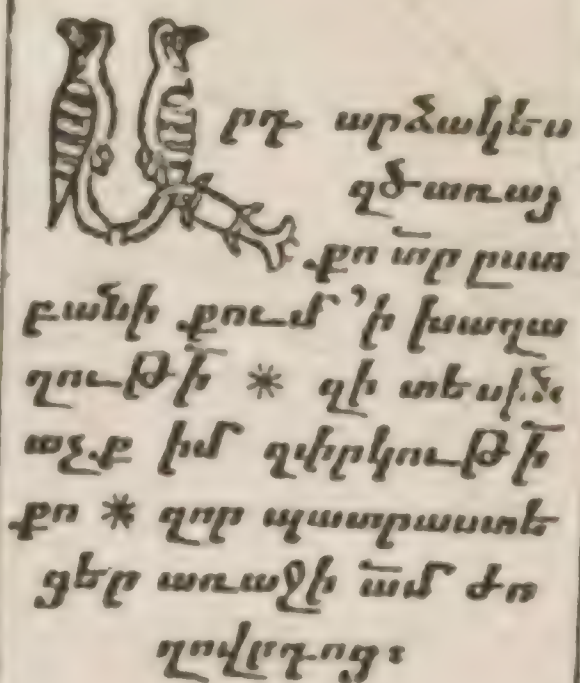 Արդ արձակեա
զծառայ
քո տ̄ր ըստ
բանի քում ՚ի խաղա
ղութի̄ * զի տեսին
աչք իմ զփրկութի̄
քո * զոր պատրաստե
ցեր առաջի ա̄մ ժո
ղովըրդոց։